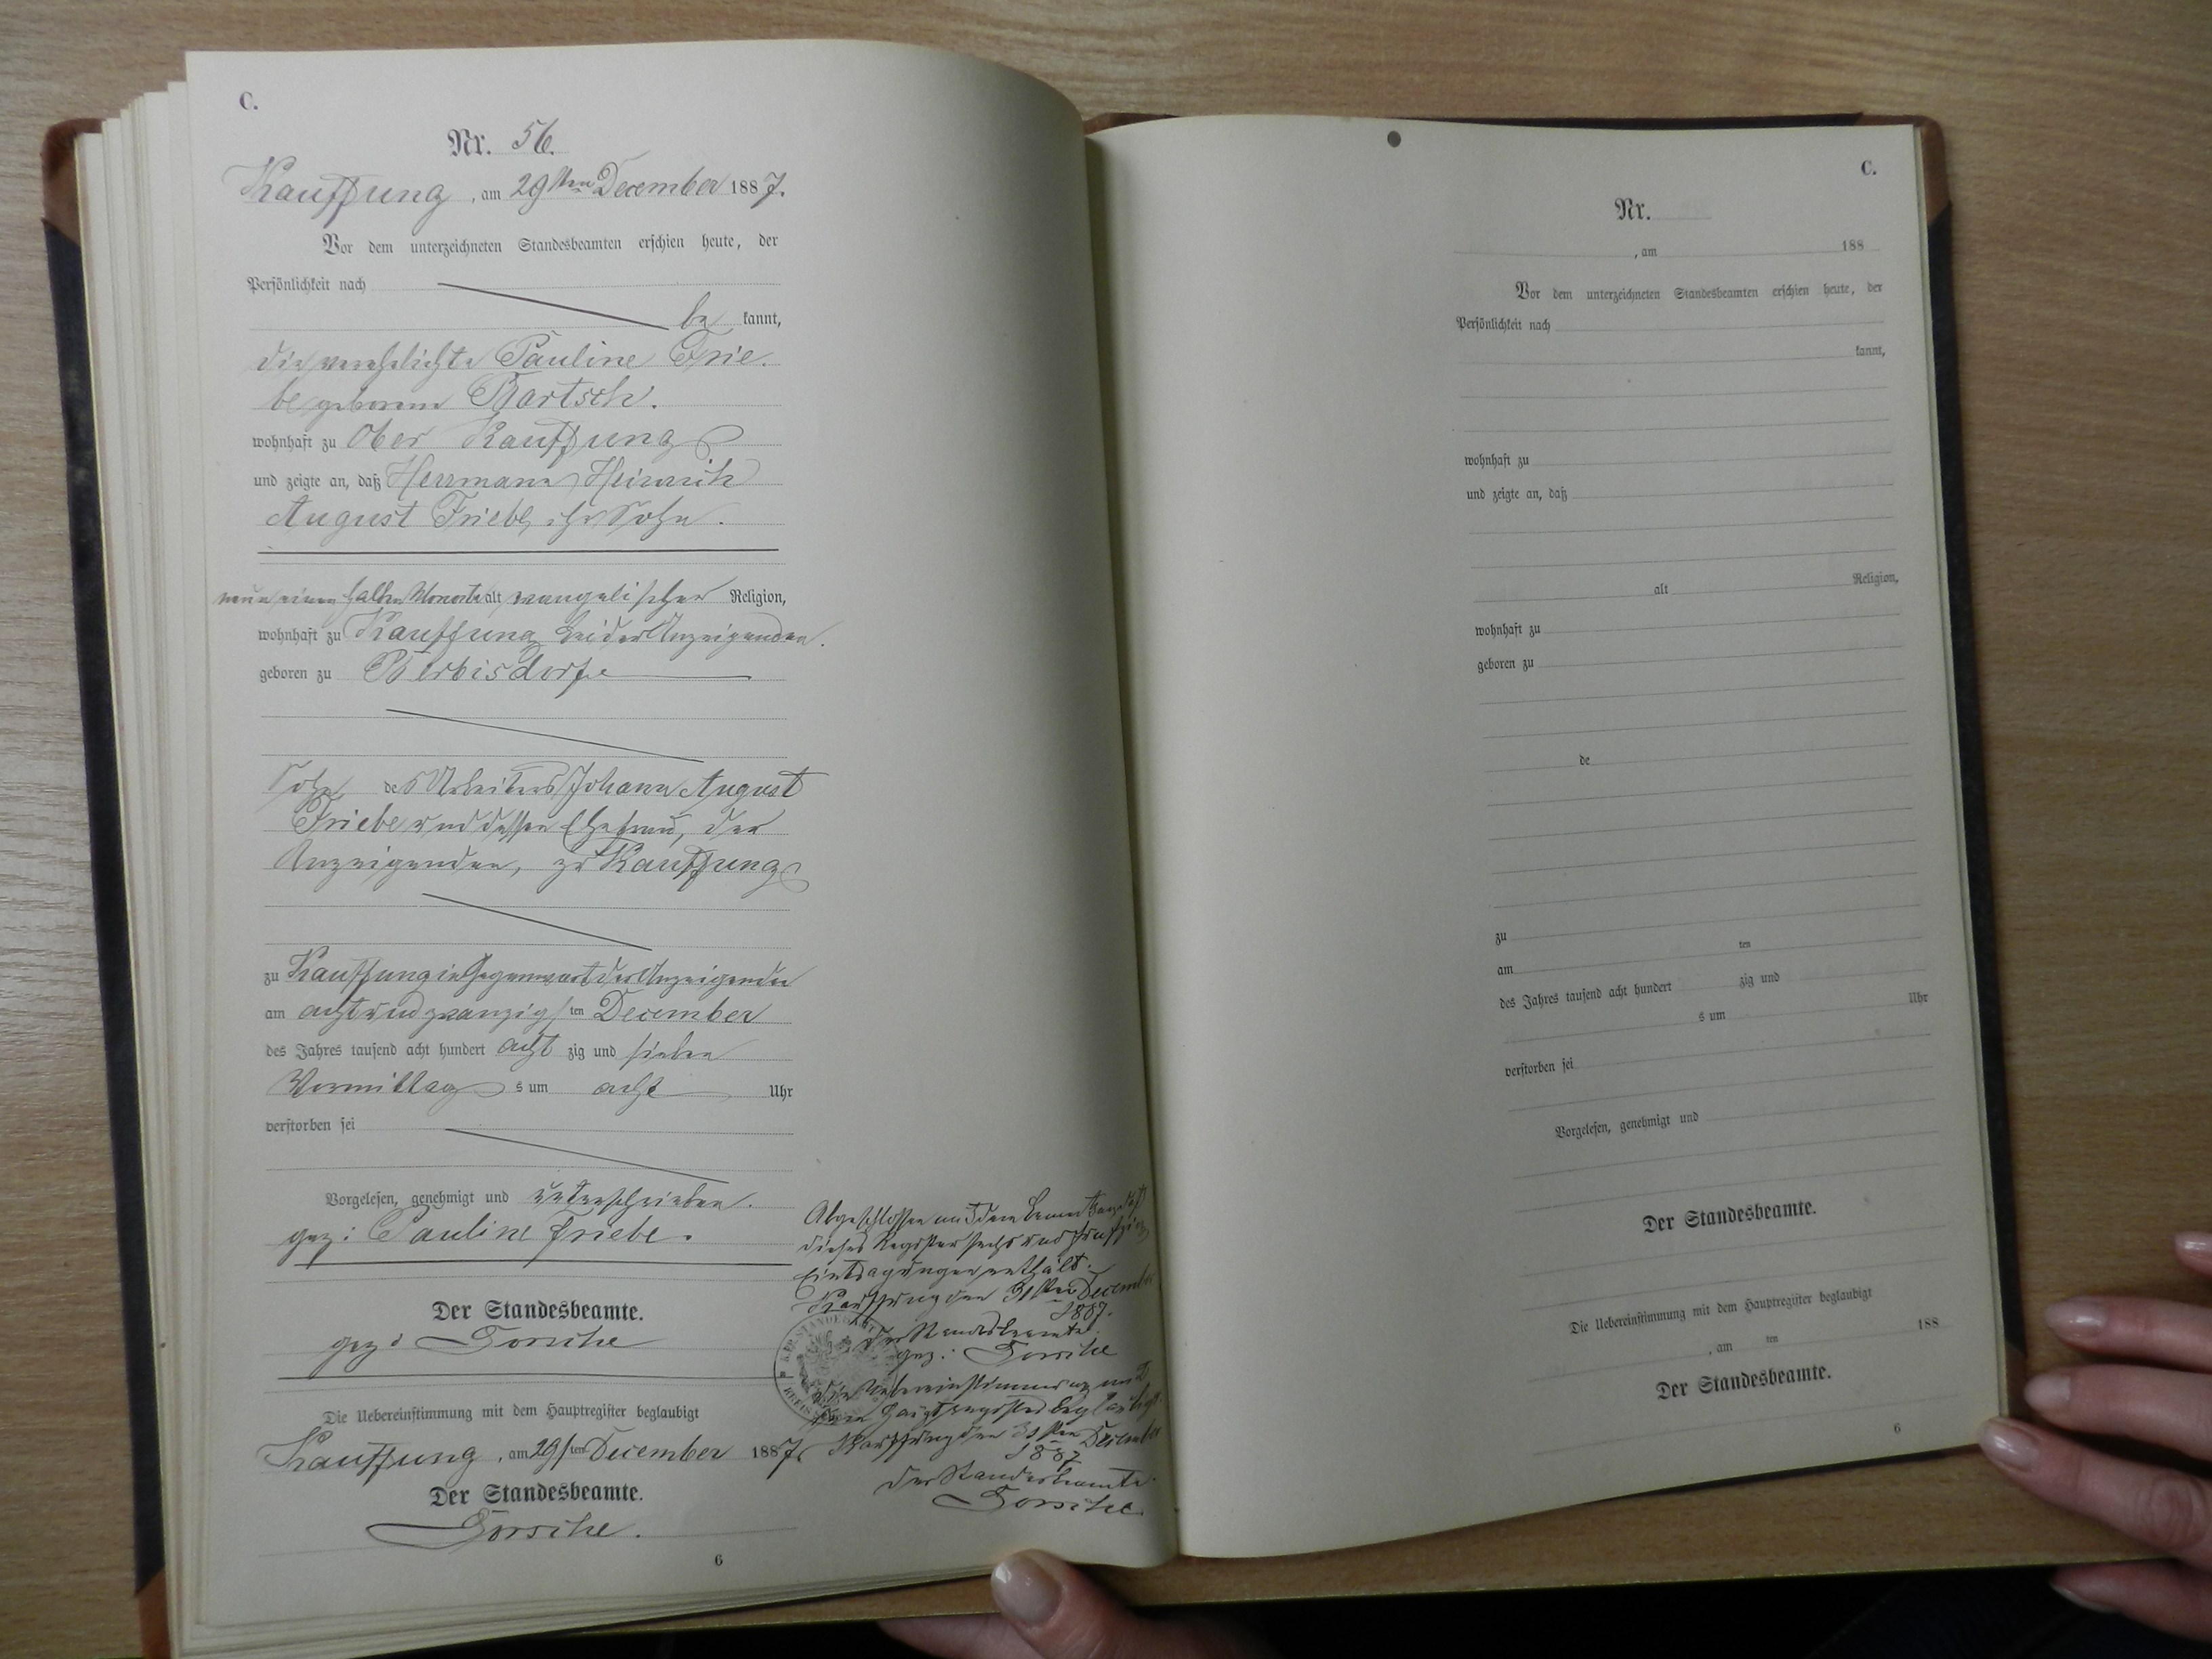 C.
Nr. 56.
Kauffung, am 29ten December 1887.
Vor dem unterzeichneten Standesbeamten erschien heute, der
Persönlichkeit nach
be kannt,
die verehelichte Pauline Frie-
be geborene Bartsch.
wohnhaft zu Ober Kauffung
und zeigte an, daß Herrmann Heinrich
August Friebe, ihr Sohn.
neun einen halben Monate alt, evangelischer Religion,
wohnhaft zu Kauffung bei der Anzeigenden.
geboren zu Berbisdorf
Sohn des Arbeiters Johann August
Friebe und dessen Ehefrau, der
Anzeigenden, zu Kauffung
zu Kauffung in Gegenwart der Anzeigenden
am achtundzwanzigsten December
des Jahres tausend acht hundert acht zig und sieben
Vormittags um acht Uhr
verstorben sei
Vorgelesen, genehmigt und unterschrieben.
gez: Pauline Friebe.
Der Standesbeamte.
gez:
Die Uebereinstimmung mit dem Hauptregister beglaubigt
Kauffung, am 29sten December 1887.
Der Standesbeamte.
6
Abgeschlossen mit dem Bemerken daß
dieses Register sechs und fünfzig
Eintragungen enthält.
Kauffung den 31sten December
1887.
Der Standesbeamte.
gez:
Die Uebereinstimmung mit
dem Hauptregister beglaubigt.
Kauffung den 31sten December
1887
Der Standesbeamte.
C.
Nr.
, am 188
Vor dem unterzeichneten Standesbeamten erschien heute, der
Persönlichkeit nach
kannt,
wohnhaft zu
und zeigte an, daß
alt Religion,
wohnhaft zu
geboren zu
de
zu
am ten
des Jahres tausend acht hundert zig und
s um Uhr
verstorben sei
Vorgelesen, genehmigt und
Der Standesbeamte.
Die Uebereinstimmung mit dem Hauptregister beglaubigt
, am ten 188
Der Standesbeamte.
6